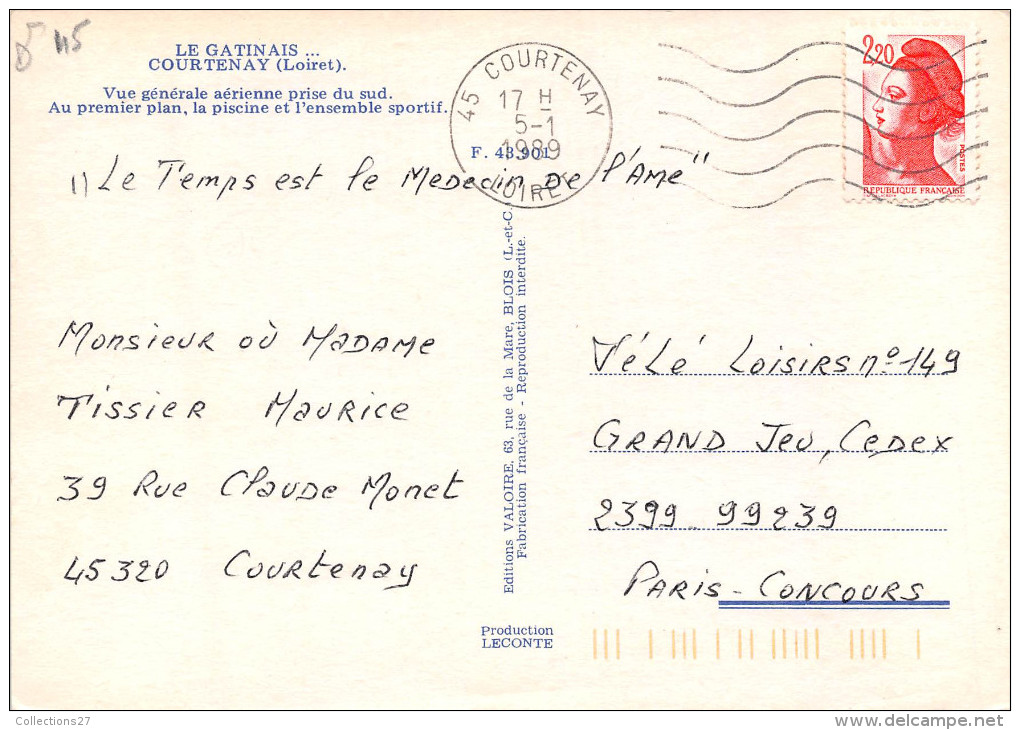 45
LE GATINAIS ...
COURTENAY (Loiret).
Vue générale aérienne prise du sud.
Au premier plan, la piscine et l'ensemble sportif.
F. 43.901
45 COURTENAY
17 H
5-1
1989
LOIRET
2,20
POSTES
REPUBLIQUE FRANCAISE
"Le Temps est le Medecin De l'Ame"
Monsieur où Madame
Tissier Maurice
39 Rue Claude Monet
45320 Courtenay
Editions VALOIRE, 63, rue de la Mare, BLOIS (L.-et-C.)
Fabrication française - Reproduction interdite.
Télé Loisirs nº 149
Grand Jeu, Cedex
2399 99239
Paris-Concours
Production
LECONTE
Collections27
delcampe.net